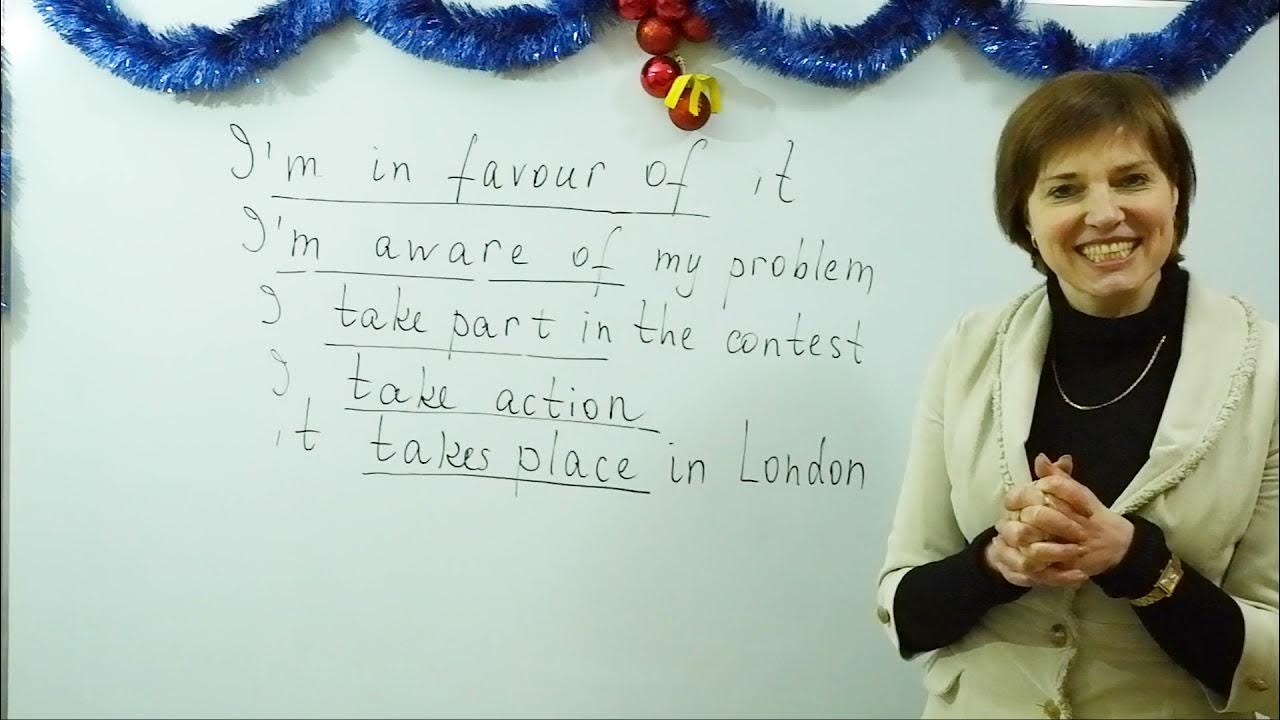 I'm in favour of it
I'm aware of my problem
I take part in the contest
I take action
it takes place in London